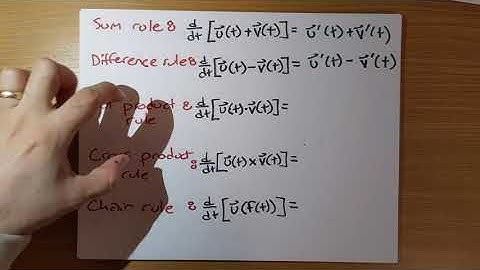 Sum rule : d/dt [u⃗(t)+v⃗(t)] = u⃗'(t)+v⃗'(t)
Difference rule : d/dt [u⃗(t)-v⃗(t)] = u⃗'(t)-v⃗'(t)
product : d/dt [u⃗(t)·v⃗(t)] =
rule
product : d/dt [u⃗(t)×v⃗(t)] =
rule
Chain rule : d/dt [u⃗(f(t))] =